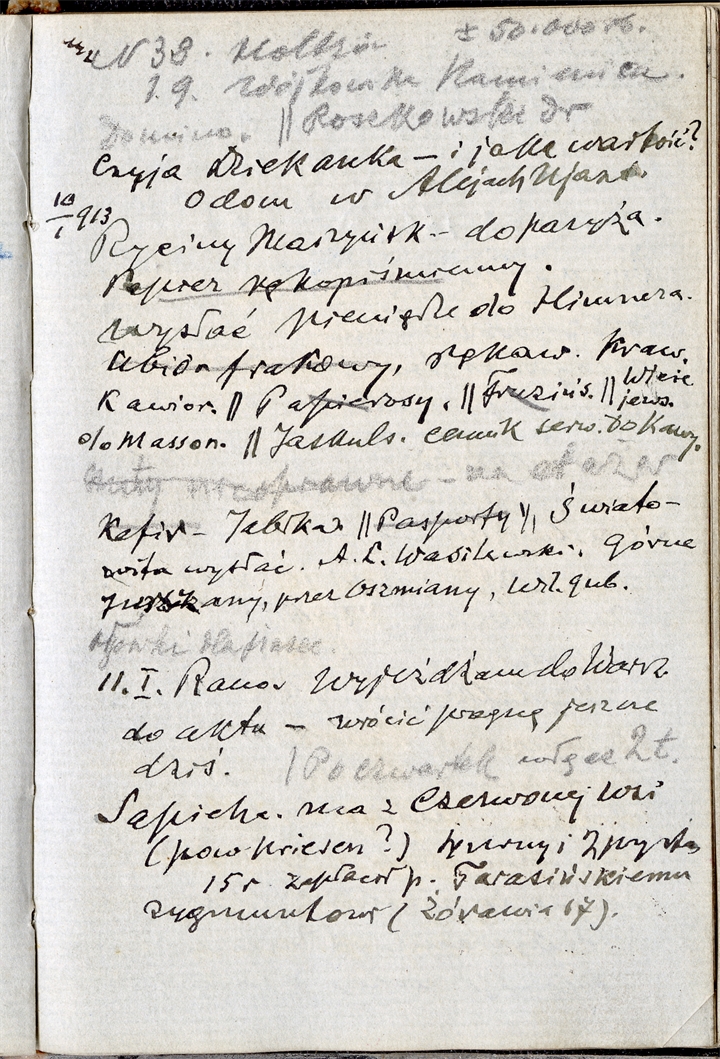 N 38. ± 50.000 rb.
19. Wójtowska Kamienica.
Domino. || Roszkowski Dr
Czyja Dziekanka – i jaka wartość?
O dom w Alejach Ujazd.
10/I 913
Ryciny – do Paryża.
Papier rękopiśmienny.
Wysłać pieniądze do Himnera.
Ubiór frakowy, rękaw. Kraw.
Kawior. || Papierosy. || Fruzińs. || Wieje
jews.
do Masson. || Jaskuls. cennik serw. Do Kawy.
– na
Kefir – || Pasporty ||, Świato-
wita wysłać. A. L. Wasilewski. Górne
przez Oszmiany, wil. gub.
11. I. Rano. Wyjeżdżam do Warsz.
do aktu – wrócić pragnę jeszcze
dziś. | Po czwartek 2 ł.
Sapieha. ma z Czerwonej wsi
(pow Kriesen?) i
15 r zapłacił p. Tarasińskiemu
Zygmuntowi (Żórawia 17).